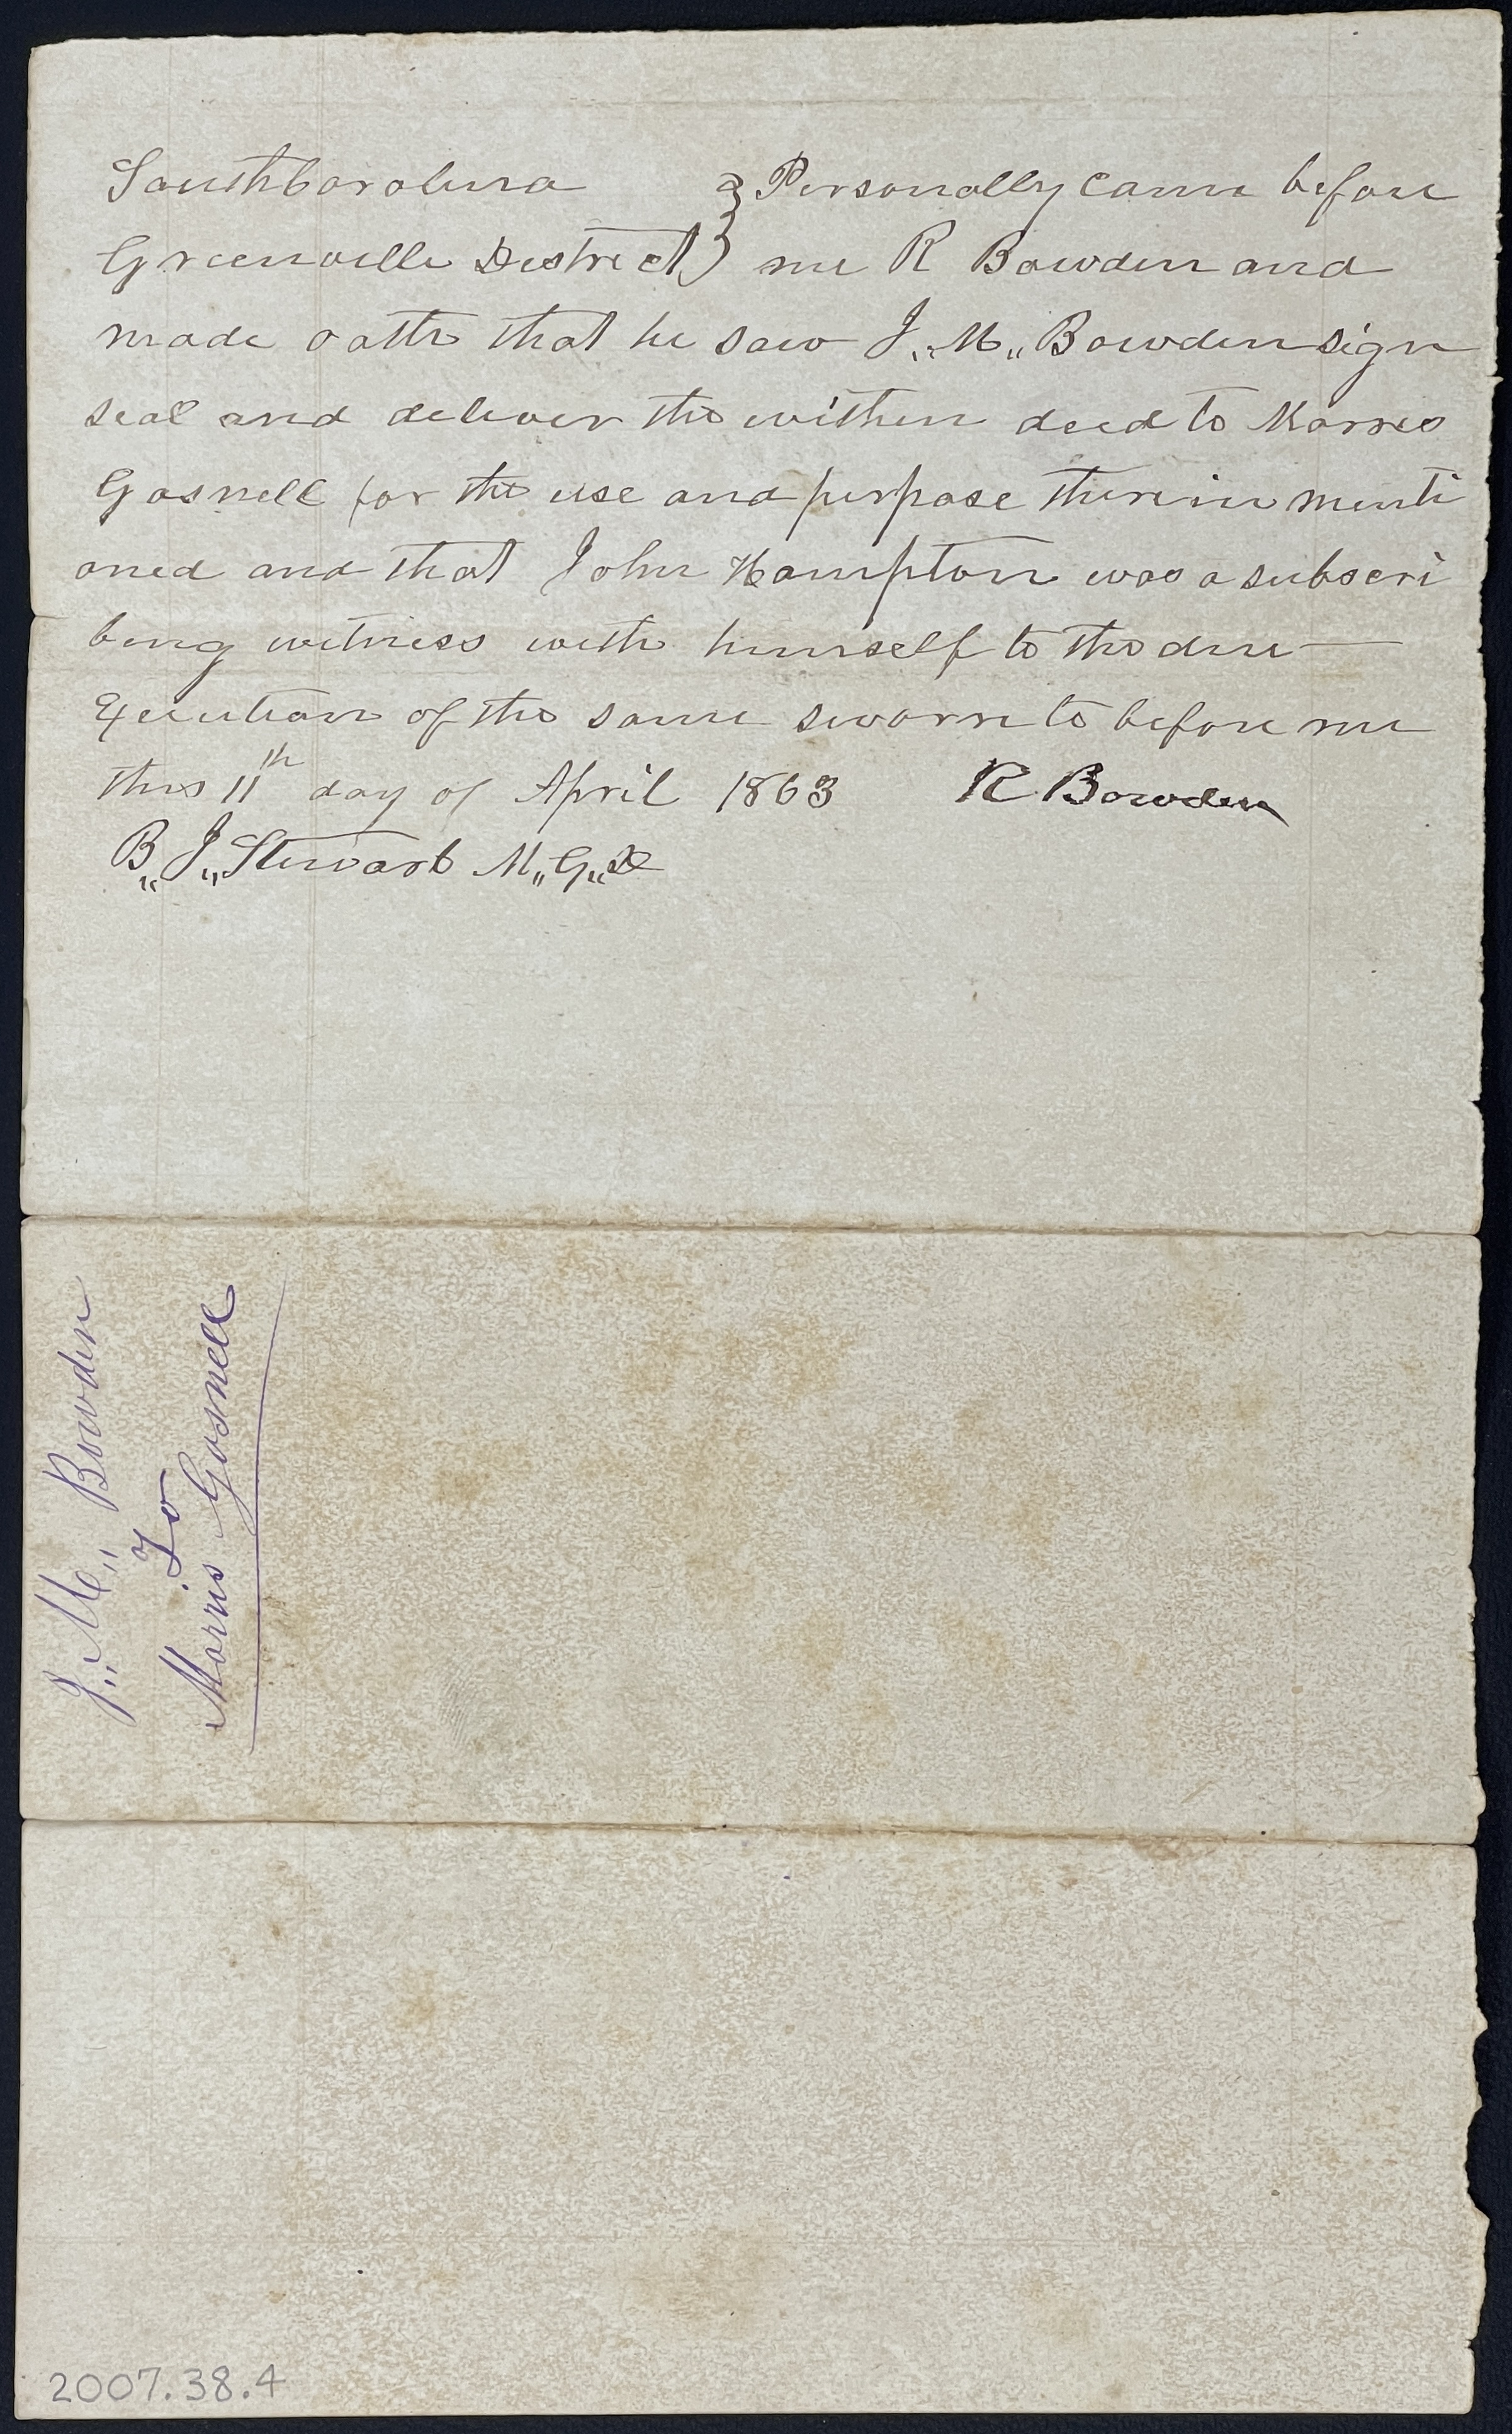 South Carolina } Personally came before
Greenville District } me R Bowden and
made oath that he saw J,, M,, Bowden sign
seal and deliver the within deed to Morris
Gosnell for the use and purpose therein menti
oned and that John Hampton was a subscri
bing witness with himself to the due —
Execution of the same sworn to before me
this 11th day of April 1863 R Bowden
B,, J,, Stewart M,, G,, D
J,, M,, Bowden
To
Morris Gosnell
2007.38.4